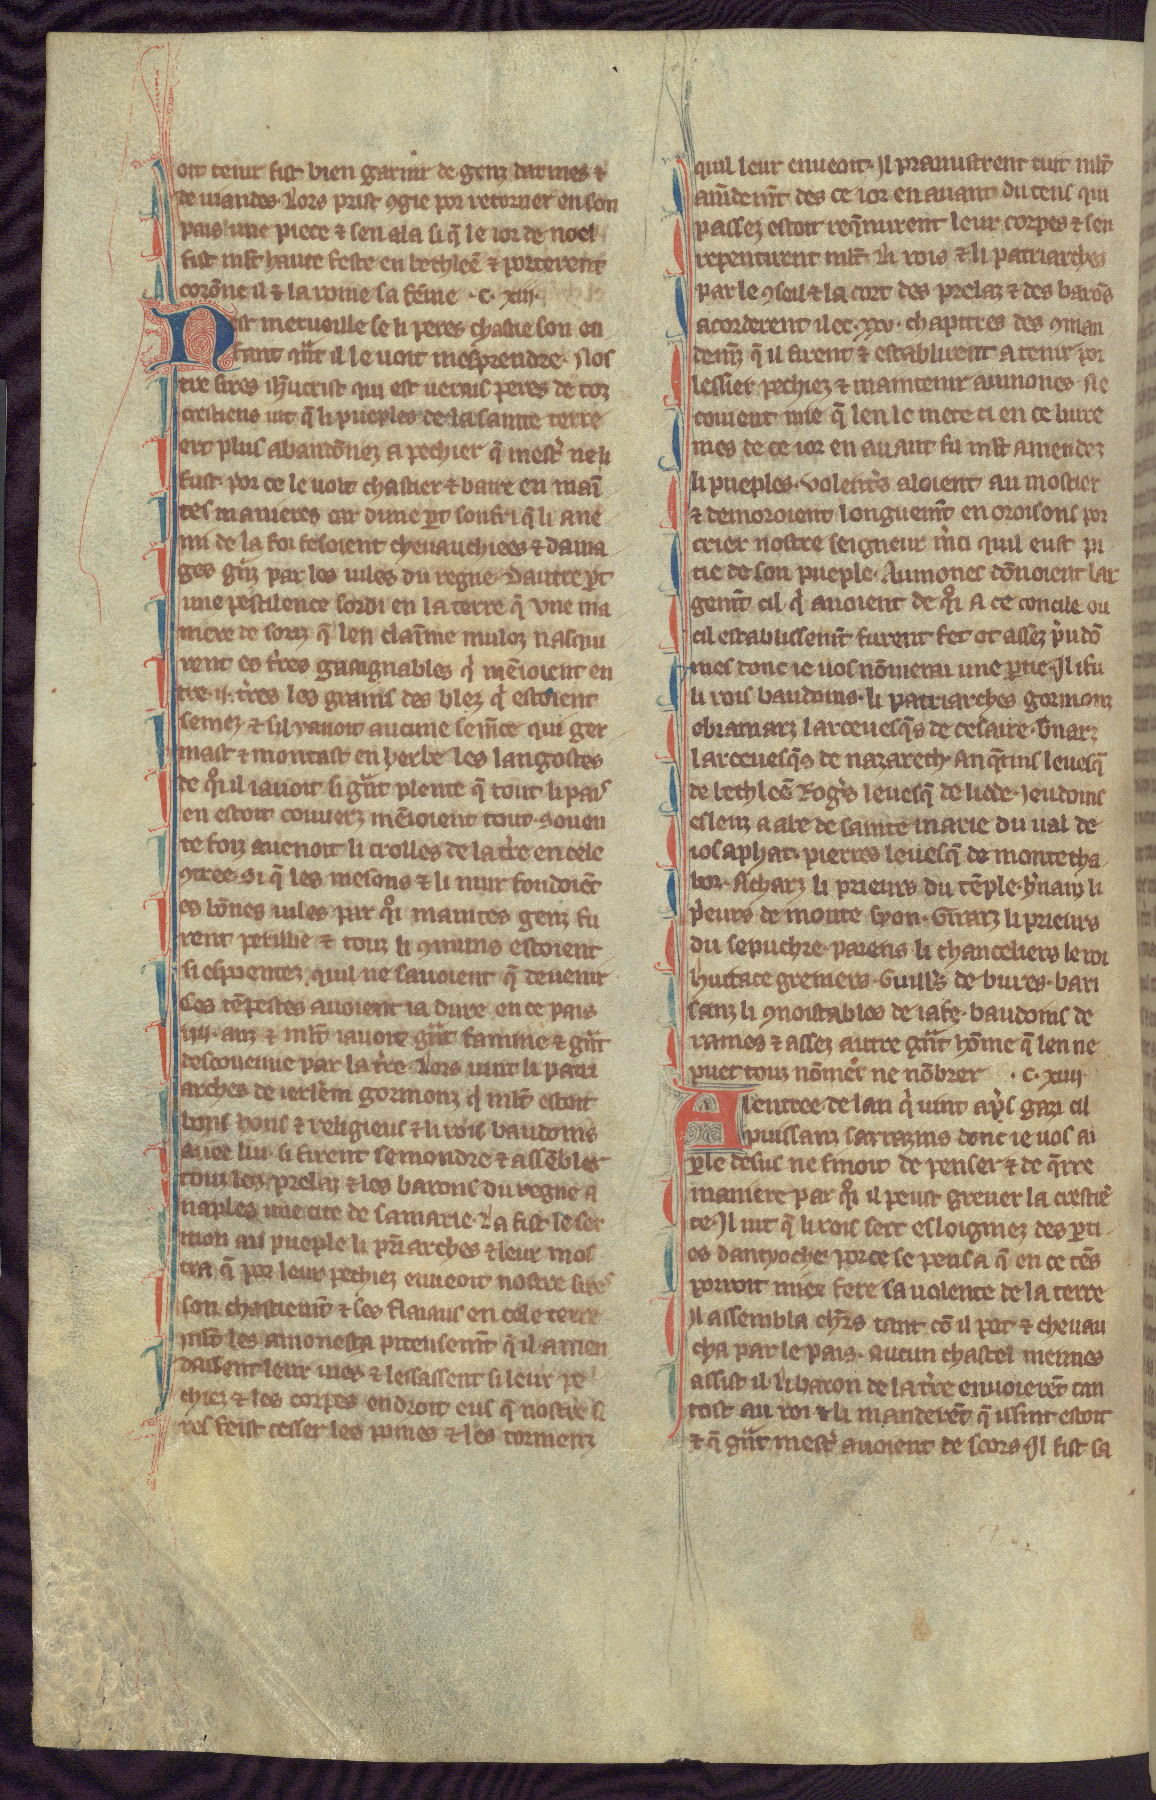 oit tenir fist bien garnir de genz darmes ⁊
de uiandes. Lors prist ꝯgie por retorner en son
pais une piece ⁊ sen ala si q̃ le ior de noel
fist ml̃t haute feste en bethleẽ ⁊ porterent
corõne il ⁊ la roine sa fẽme .c. xiii.
Nest merueille se li peres chastie son en
fant qñt il le uoit mesprendre. Nos
tre sires ih̃ucrist qui est uerais peres de toz
crestiens uit q̃ li pueples de la sainte terre
ert plus abandõnez a pechier q̃ mest̃ ne li
fust. por ce le uolt chastier ⁊ batre en maĩ
tes manieres car dune ꝑt soufri q̃ li ane
mi de la foi fesoient cheuauchiees ⁊ dama
ges gñz par les uiles du regne. Dautre ꝑt
une pestilence sordi en la terre q̃ vne ma
niere de soriz q̃ len claĩme muloz nasqui
rent es t̃res gaaignables q̃ mẽioient en
tre .ii. t̃res les grains des blez q̃ estoient
semez ⁊ sil yauoit aucune sem̃ce qui ger
mast ⁊ montast en herbe les langostes
de q̃i il iauoit si gñt plente q̃ tout li païs
en estoit couuerz mẽioient tout. Souen
te foiz auenoit li crolles de la t̃re en cele
ꝯtree. si q̃ les mesons ⁊ li mur fondoiẽt
es bõnes uiles par q̃i maintes genz fu
rent perillie ⁊ touz li ꝯmuns estoient
si espoentez quil ne sauoient q̃ deuenir
Ces tẽpestes auoient ia dure en ce pais
iiii. anz ⁊ ml̃t iauoit gñt famine ⁊ gñt
descouenue par la t̃re. Lors uint li patri
arches de ierl̃em gormonz q̃ ml̃t estoit
bons hons ⁊ religieus ⁊ li rois baudoins
auec lui. si firent semondre ⁊ assẽbler
touz les prelaz ⁊ les barons du regne a
naples une cite de samarie. La fist le ser
mon au pueple li pr̃iarches ⁊ leur mos
tra q̃ por leur pechiez enueoit nostre sires
son chastiem̃t ⁊ ses flaiaus en cele terre
ml̃t les amonesta piteusem̃t q̃ il amen
dassent leur uies ⁊ lessassent si leur pe
chiez ⁊ les corpes endroit eus q̃ nostre si
res feist cesser les poines ⁊ les tormenz
quil leur enueoit. Il pramistrent tuit ml̃t
am̃dem̃t des ce ior en auant. du tens qui
passez estoit req̃nurent leur corpes ⁊ sen
repentirent ml̃t. Li rois ⁊ li patriarches
par le ꝯseil ⁊ la cort des prelaz ⁊ des barõs
acorderent ilec .xxv. chapitres des ꝯman
dem̃z q̃ il firent ⁊ establirent a tenir por
lessier pechiez ⁊ maintenir aumones. ne
couient mie q̃ len le mete ci en ce liure
mes de ce ior en auant fu ml̃t amendez
li pueples. volent̃s aloient au mostier
⁊ demoroient longuem̃t en oroisons por
crier nostre seigneur m̃ci quil eust pi
tie de son pueple. Aumones dõnoient lar
gem̃t cil q̃ auoient de q̃i a ce concile ou
cil establissem̃t furent fet ot assez p̃udõ
mes donc ie uos nõmerai une ꝑtie. Il i fu
li rois baudoins. li patriarches gormonz
obramarz larceuesq̃s de cesaire. b̃narz
larceuesq̃s de nazareth. Anq̃tins leuesq̃
de bethleẽ Rog̃s leuesq̃ de liede. Jeudoins
eslenz a abe de sainte marie du val de
iosaphat. pierres leuesq̃ de monte tha
bor. Acharz li prieurs du tẽple. h̃nauz li
p̃eurs de monte syon. Girarz li prieurs
du sepuchre. paiens li chanceliers le roi
huttace greniers. Guill̃s de bures. bari
sanz li ꝯnoistables de iafe. baudoins de
rames ⁊ assez autre gñt hõme q̃ len ne
puet touz nõmer ne nõbrer .c. xiiii
A lentree de lan q̃ uint ap̃s gazi cil
puissanz sarrazins donc ie uos ai
ꝑle desus ne finoit de penser ⁊ de q̃rre
maniere par q̃i il peust greuer la crestiẽ
te. Il uit q̃ li rois sert esloignez des ꝑti
es dantyoche. por ce se pensa q̃ en ce tẽs
porroit miex fere sa uolente de la terre
Il assembla ch̃rs tant cõ il pot ⁊ cheuau
cha par le pais. aucun chastel meimes
assist il. Li baron de la t̃re enuoierẽt tan
tost au roi ⁊ li manderẽt q̃ issint estoit
⁊ q̃ gñt mest̃ auoient de scors. Il fist sa